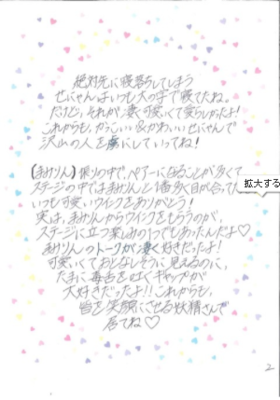 絶対先に寝落ちしてしまう
せにゃんはいつも大の字で寝てたね。
だけど、それが、凄く可愛くて愛らしかったよ!
これからも、かっこいい&かわいいせにゃんで
沢山の人を虜にしていってね!
(まみりん) 振りの中で、ペアーになることが多くて
ステージの中ではまみりんと1番多く目が合ってた
いつも可愛いウインクをありがとう!
実は、まみりんからウインクをもらうのが、
ステージに立つ楽しみの1つでもあったんだよ♡
まみりんのトークが凄く好きだったよ!
可愛いくておとなしそうに見えるのに、
たまに毒舌を吐くギャップが
大好きだったよ!!これからも、
皆を笑顔にさせる妖精さんで
居てね♡
拡大する
2